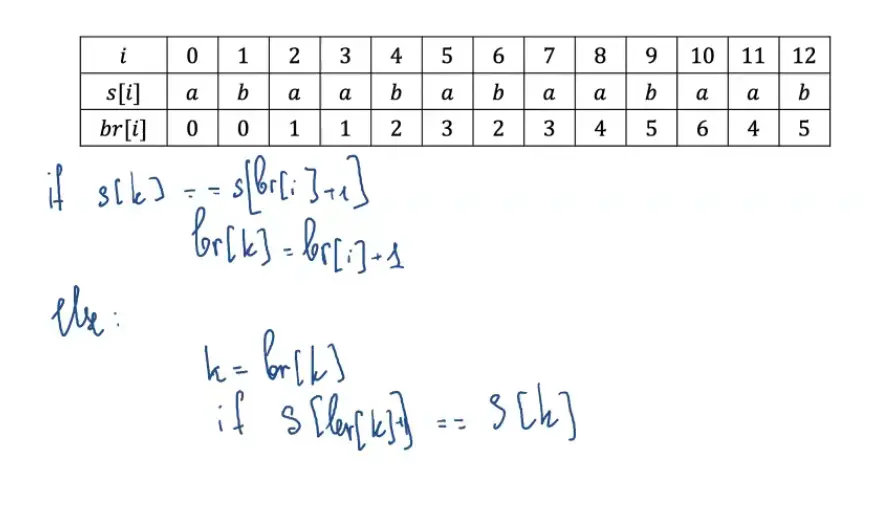 i 0 1 2 3 4 5 6 7 8 9 10 11 12
s[i] a b a a b a b a a b a a b
br[i] 0 0 1 1 2 3 2 3 4 5 6 4 5
if s[k] == s[br[i]+1]
br[k] = br[i]+1
Else:
k = br[k]
if s[br[k]+1] == s[k]